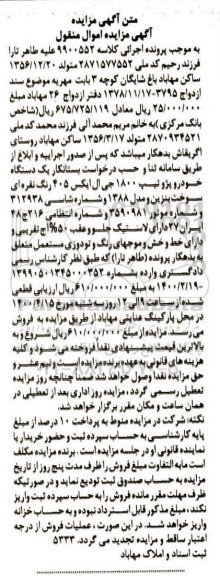 متن آگهی مزایده
آگهی مزایده اموال منقول
به موجب پرونده اجرائی کلاسه ۹۹۰۰۵۵۲ علیه طاهر تارا
فرزند رحیم کد ملی ۲۸۷۱۵۷۷۵۵۲ متولد ۱۳۵۶/۱۲/۲۰
ساکن مهاباد باغ شایگان کوچه ۳ بابت مهریه موضوع سند
ازدواج ۳۷۹۵-۱۳۷۸/۱۱/۱۷ دفتر ازدواج ۲۶ مهاباد مبلغ
۲۵/۰۰۰/۰۰۰ ریال معادل ۶۷۵/۷۲۵/۱۱۹ ریال(شاخص
بانک مرکزی) به خانم مریم محمد آلی فرزند محمد کد ملی
۲۸۷۰۹۳۴۵۲۱ متولد ۱۳۵۶/۳/۱۷ ساکن مهاباد روستای
اگریقاش بدهکار میباشد که پس از صدور اجراییه و ابلاغ از
طریق سامانه ثنا و حسب درخواست بستانکار یک دستگاه
خودرو پژو تیپ ۱۸۰۰ جی ال ایکس ۴۰۵ رنگ نقره ای
سوخت بنزین و مدل ۱۳۸۸ و شماره شاسی ۳۱۲۹۳۸
و شماره موتور ۳۵۹۰۹۸۱ و شماره انتظامی ۲۱۶ج۴۸
ایران ۲۷ دارای لاستیک جلو و عقب ۵۰% آج تقریبی و
دارای خط و خش و موجهای رنگ و تودوزی مستعمل متعلق
به بدهکار پرونده (طاهر تارا) که طبق نظر کارشناس رسمی
دادگستری وارده بشماره ۱۳۹۹۰۵۰۱۳۴۵۰۰۰۳۵۲
-۱۴۰۰/۲/۱۹ به مبلغ ۶۱۰/۰۰۰/۰۰۰ ریال ارزیابی قطعی
شده از ساعت ۹ الی ۱۲ روز سه شنبه مورخ ۱۴۰۰/۴/۱۵
در محل پارکینگ عنایتی مهاباد از طریق مزایده به فروش
می رسد. مزایده از مبلغ ۶۱۰/۰۰۰/۰۰۰ ریال شروع و به
بالاترین قیمت پیشنهادی نقدا فروخته می شود و کلیه
هزینه های قانونی به عهده برنده مزایده است و نیم عشر و
حق مزایده نقدا وصول خواهد شد ضمنا چنانچه روز مزایده
تعطیل رسمی گردد، مزایده روز اداری بعد از تعطیلی در
همان ساعت و مکان مقرر برگزار خواهد شد.
نکته: شرکت در مزایده منوط به پرداخت ۱۰ درصد از مبلغ
پایه کارشناسی به حساب سپرده ثبت و حضور خریدار یا
نماینده قانونی او در جلسه مزایده است. برنده مزایده مکلف
است مابه التفاوت مبلغ فروش را ظرف مدت پنج روز از تاریخ
مزایده به حساب صندوق ثبت تودیع نماید و در صورتیکه
ظرف مهلت مقرر مانده فروش را به حساب سپرده ثبت واریز
نکند، مبلغ مذکور قابل استرداد نبوده و به حساب خزانه
واریز خواهد شد. در این صورت ، عملیات فروش از درجه
اعتبار ساقط و مزایده تجدید می گردد. ۵۳۳۳
ثبت اسناد و املاک مهاباد